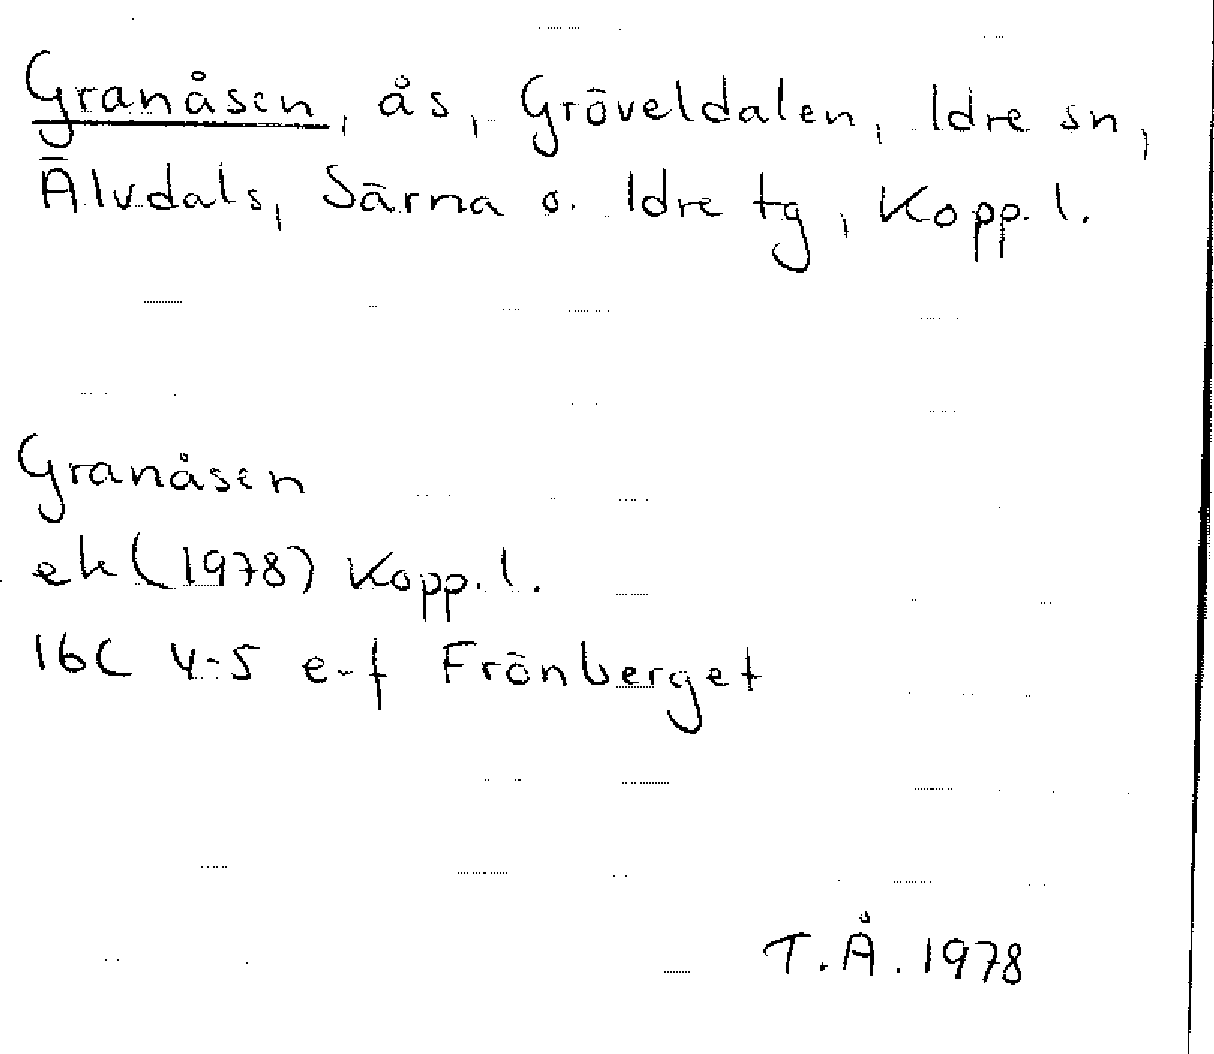 Granåsen, ås, Gröveldalen, Idre sn,
Älvdals, Särna o. Idre tg, Kopp. l.
Granåsen
ek (1978) Kopp. l.
16C 4-5 e-f Frönberget
T.Å. 1978